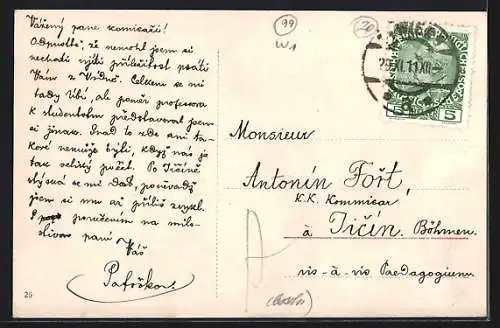 Vážený pane komisaři!
Odpusťte, že nemohl jsem si
nechati ujíti příležitost psáti
Vám z Vídně. Celkem se mi
tady líbí, ale poměr profesora
k studentům představoval jsem
si jinak. Snad to zde ani ta-
kové nemůže býti, když nás je
tak veliký počet. Po Jičíně
stýská se mi dost, poněvadž
jsem si mu až příliš zvykl.
S poručením na milo-
stivou paní
Váš
99
W1
20
WIEN
29.XI.11.XII
5
5
Monsieur
Antonín Fořt,
K.K. Kommissar
à Jičín. Böhmen.
vis-à-vis Paedagogium
25